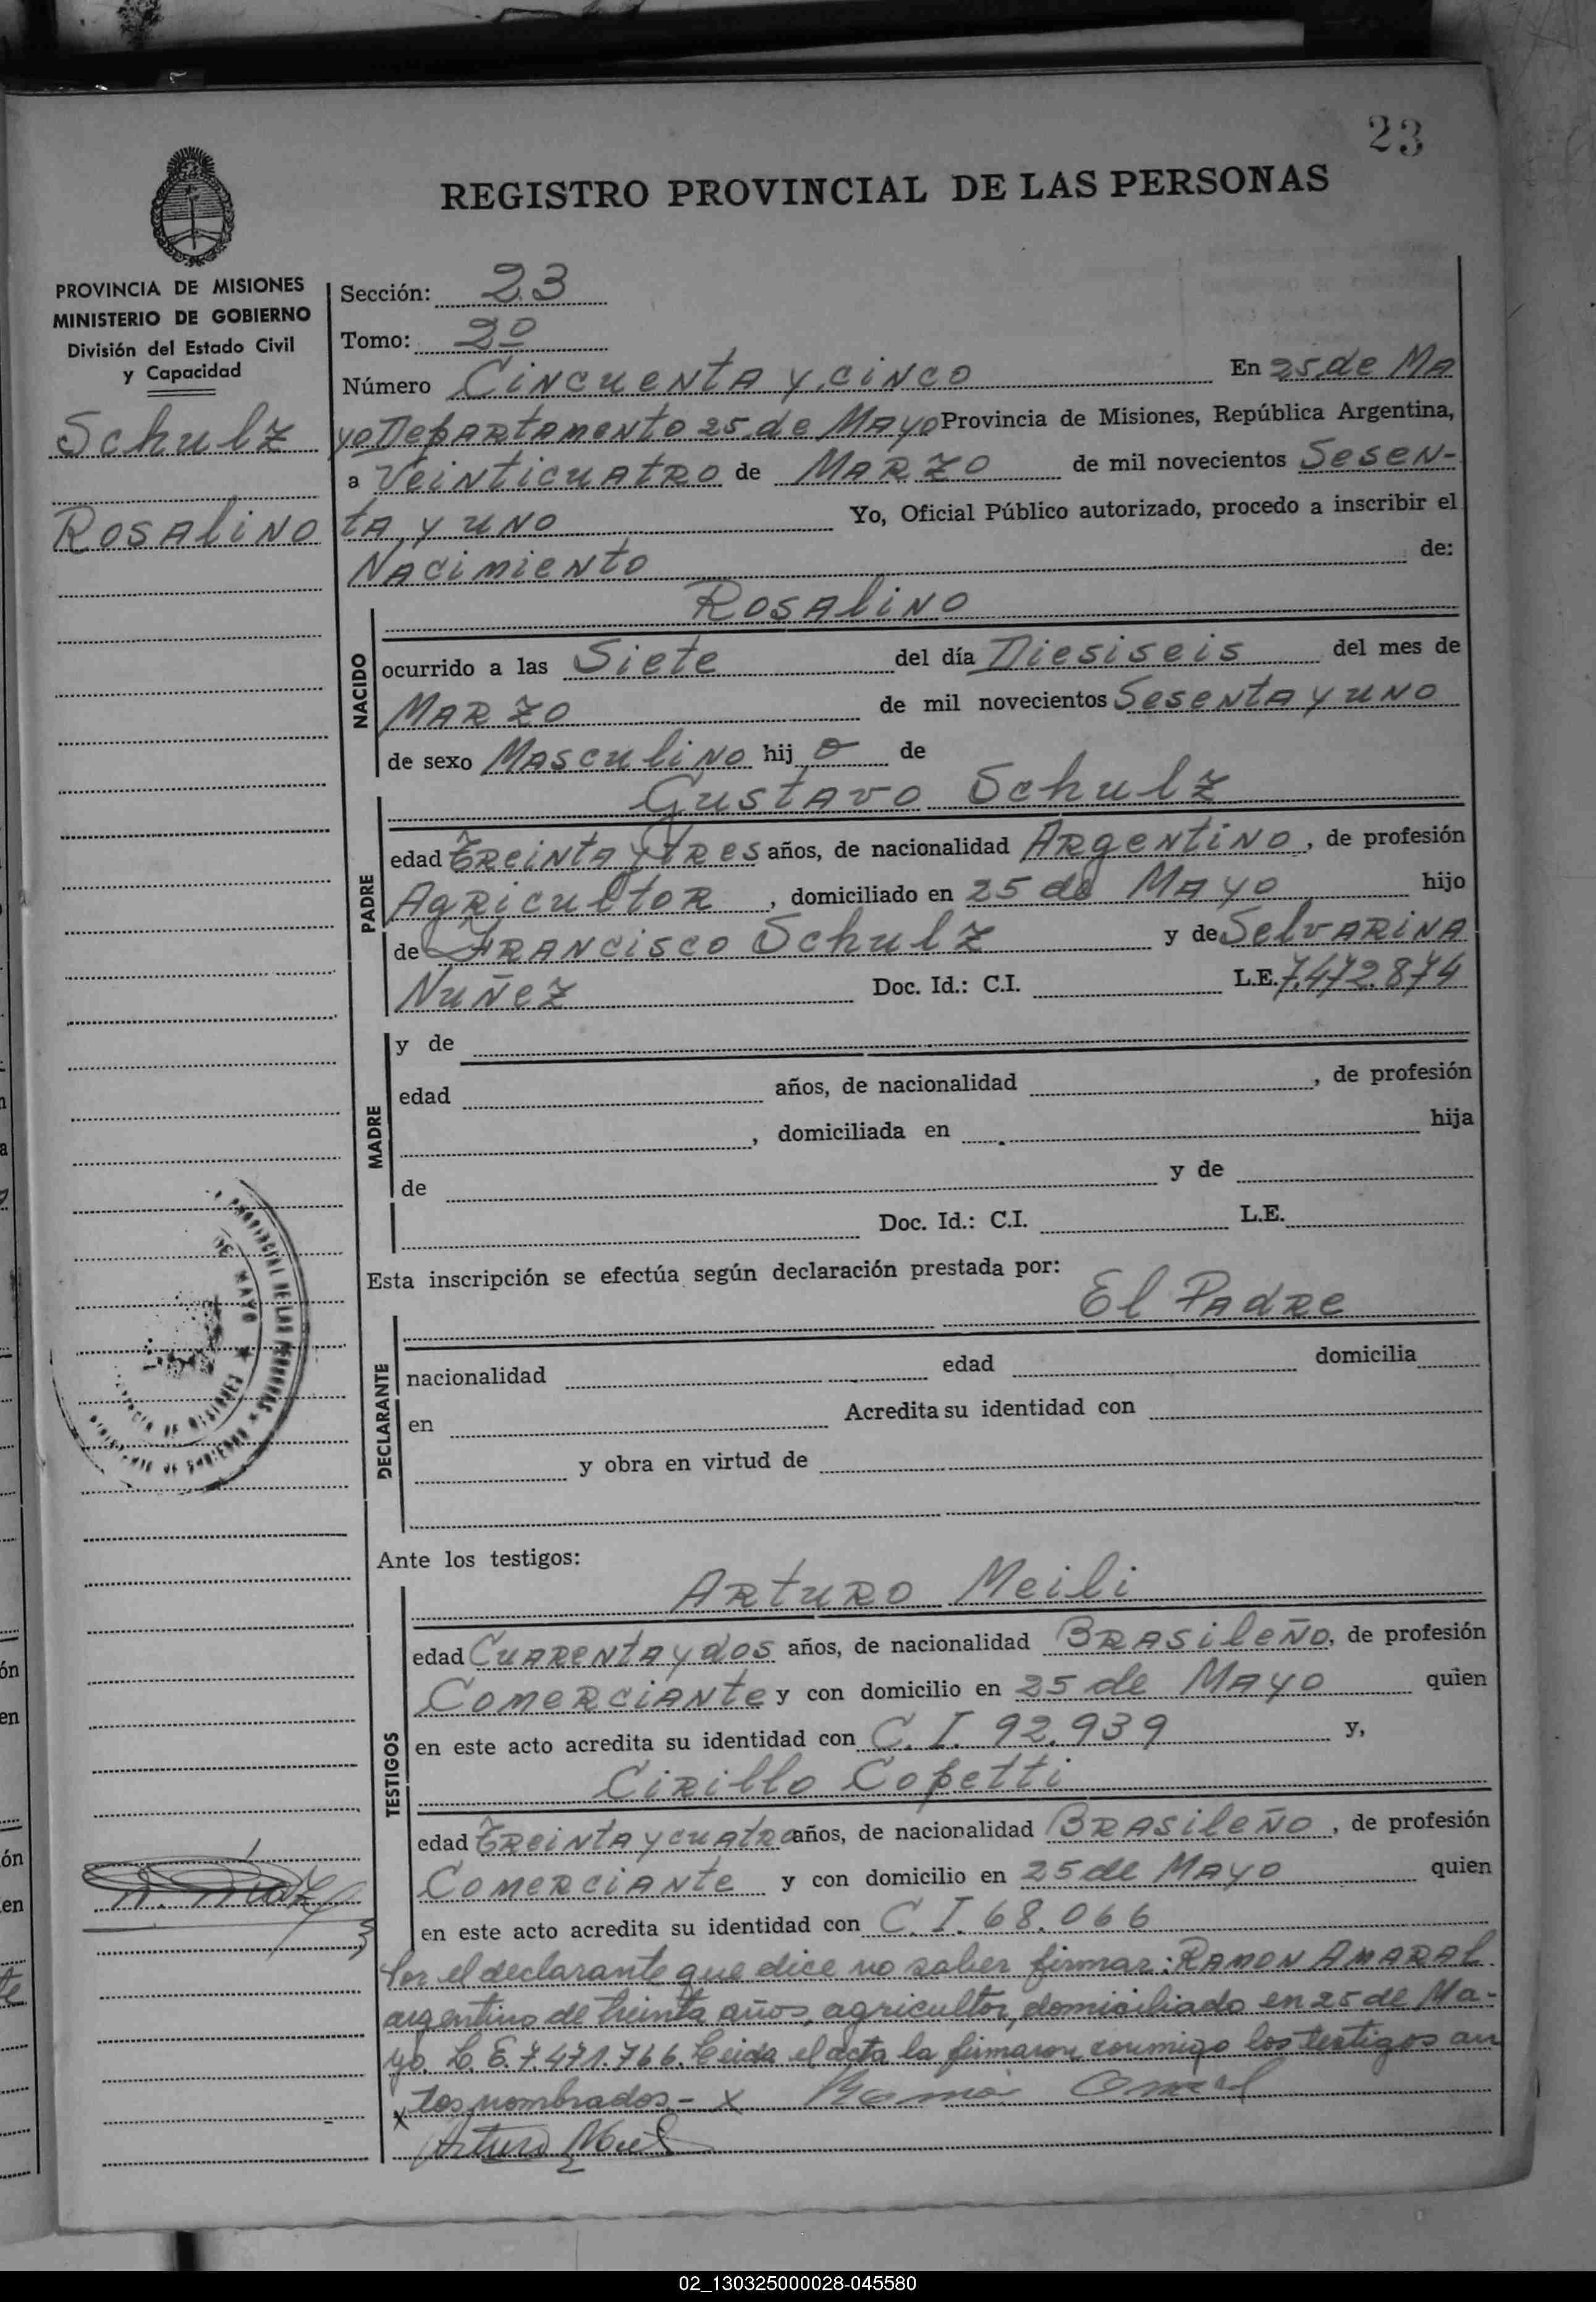 23
REGISTRO PROVINCIAL DE LAS PERSONAS
PROVINCIA DE MISIONES
MINISTERIO DE GOBIERNO
División del Estado Civil
y Capacidad
Schulz
Rosalino
Sección: 23
Tomo: 2º
Número Cincuenta y cinco En 25 de Ma
yo Departamento 25 de Mayo Provincia de Misiones, República Argentina,
a Veinticuatro de Marzo de mil novecientos Sesen-
ta y uno Yo, Oficial Público autorizado, procedo a inscribir el
Nacimiento de:
Rosalino
NACIDO
ocurrido a las Siete del día Diesiseis del mes de
Marzo de mil novecientos Sesenta y uno
de sexo Masculino hij o de
Gustavo Schulz
PADRE
edad treinta y tres años, de nacionalidad Argentino, de profesión
Agricultor, domiciliado en 25 de Mayo hijo
de Francisco Schulz y de Selvarina
Nuñez Doc. Id.: C.I. L.E. 7.472.874
MADRE
y de
edad años, de nacionalidad , de profesión
, domiciliada en hija
de y de
Doc. Id.: C.I. L.E.
Esta inscripción se efectúa según declaración prestada por:
El Padre
DECLARANTE
nacionalidad edad domicilia
en Acredita su identidad con
y obra en virtud de
Ante los testigos:
Arturo Meili
TESTIGOS
edad Cuarenta y dos años, de nacionalidad Brasileño, de profesión
Comerciante y con domicilio en 25 de Mayo quien
en este acto acredita su identidad con C. I. 92.939 y,
Cirillo Copetti
edad treinta y cuatro años, de nacionalidad Brasileño, de profesión
Comerciante y con domicilio en 25 de Mayo quien
en este acto acredita su identidad con C. I. 68.066
Por el declarante que dice no saber firmar: RAMON AMARAL
argentino de treinta años, agricultor, domiciliado en 25 de Ma-
yo. L. E. 7.471.766. Leida el acta la firmaron conmigo los testigos an
tes nombrados.- x
x Arturo
DE MAYO
02_130325000028-045580